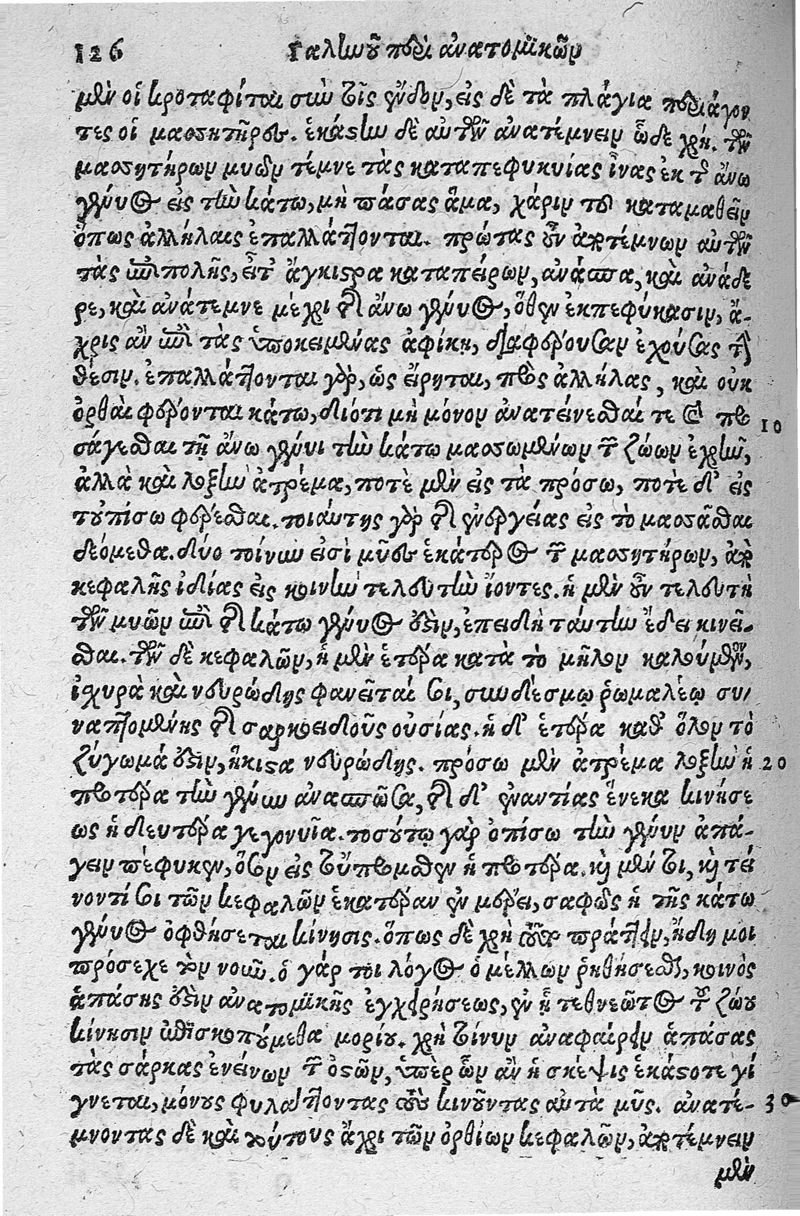 126 Γαλίωοῦ περὶ ἀνατομικῶν
μὲν οἱ κροταφίται σὺν τοῖς ἔνδον, εἰς δὲ τὰ πλάγια περιάγον
τες οἱ μασσητῆρες. ἑκάστω δὲ αὐτῶν ἀνατέμνειν ὧδε χρή. τῶν
μασσητήρων μυῶν τέμνε τὰς καταπεφυκυίας ἶνας ἐκ τῆς ἄνω
γένυος εἰς τὴν κάτω, μὴ πάσας ἅμα, χάριν τοῦ καταμαθεῖν
ὅπως ἀλλήλαις ἐπαλλάττονται. πρώτας οὖν ἀποτέμνων αὐτῶν
τὰς ἐπιπολῆς, εἶτ' ἄγκιστρα καταπείρων, ἀνάσπα, καὶ ἀνάδε
ρε, καὶ ἀνάτεμνε μέχρι τῆς ἄνω γένυος, ὅθεν ἐκπεφύκασιν, ἄ-
χρις ἂν ἐπὶ τὰς ὑποκειμένας ἀφίκῃ, διαφέρουσαν ἐχούσας τὴν
θέσιν. ἐπαλλάττονται γὰρ, ὡς εἴρηται, πρὸς ἀλλήλας, καὶ οὐκ
ὀρθαὶ φέρονται κάτω, διότι μὴ μόνον ἀνατείνεσθαί τε καὶ προ
σάγεσθαι τῇ ἄνω γένυι τὴν κάτω μασσωμένων τῶν ζώων ἐχρῆν,
ἀλλὰ καὶ λοξὴν ἀτρέμα, ποτὲ μὲν εἰς τὰ πρόσω, ποτὲ δ' εἰς
τοὐπίσω φέρεσθαι. τοιαύτης γὰρ τῆς ἐνεργείας εἰς τὸ μασσᾶσθαι
δεόμεθα. δύο τοίνυν εἰσὶ μύες ἑκάτερος τῶν μασσητήρων, ἀπὸ
κεφαλῆς ἰδίας εἰς κοινὴν τελευτὴν ἰόντες. ἡ μὲν οὖν τελευτὴ
τῶν μυῶν ἐπὶ τῆς κάτω γένυος ἐστιν, ἐπειδὴ ταύτην ἔδει κινεῖ-
σθαι. τῶν δὲ κεφαλῶν, ἡ μὲν ἑτέρα κατὰ τὸ μῆλον καλούμενον,
ἰσχυρὰ καὶ νευρώδης φανεῖταί σοι, συνδέσμῳ ῥωμαλέῳ συ-
ναπτομένης τῆς σαρκοειδοῦς οὐσίας. ἡ δ' ἑτέρα καθ' ὅλον τὸ
ζύγωμά ἐστιν, ἥκιστα νευρώδης. πρόσω μὲν ἀτρέμα λοξὴν ἡ 20
προτέρα τὴν γένυν ἀνασπῶσα, τῆς δ' ἐναντίας ἕνεκα κινήσε
ως ἡ δευτέρα γεγονυῖα. τοσούτῳ γὰρ ὀπίσω τὴν γένυν ἀπά-
γειν πέφυκεν, ὅσον εἰς τοὔμπροσθεν ἡ προτέρα. καὶ μέντοι, καὶ τεί
νοντί σοι τῶν κεφαλῶν ἑκατέραν ἐν μέρει, σαφῶς ἡ τῆς κάτω
γένυος ὀφθήσεται κίνησις. ὅπως δὲ χρὴ τοῦτο πράττειν, ἤδη μοι
πρόσεχε τὸν νοῦν. ὁ γάρ τοι λόγος ὁ μέλλων ῥηθήσεσθαι, κοινὸς
ἁπάσης ἐστὶν ἀνατομικῆς ἐγχειρήσεως, ἐν ᾗ τεθνεῶτος τοῦ ζώου
κίνησιν ἐπισκοπούμεθα μορίου. χρὴ τοίνυν ἀναφαιρεῖν ἁπάσας
τὰς σάρκας ἐκείνων τῶν ὀστῶν, ὑπὲρ ὧν ἂν ἡ σκέψις ἑκάστοτε γί
γνεται, μόνους φυλάττοντας τοὺς κινοῦντας αὐτὰ μῦς. ἀνατέ- 30
μνοντας δὲ καὶ τούτους ἄχρι τῶν ὀρθίων κεφαλῶν, ἀποτέμνειν
μὲν